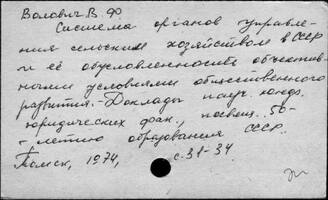 Волович В. Ф.
Система органов управле-
ния сельским хозяйством в СССР
и её обусловленность объектив-
ными условиями общественного
развития. - Доклады науч. конф.
юридических фак., посвящ. 50-
летию образования СССР.
Томск, 1974, с. 31-34